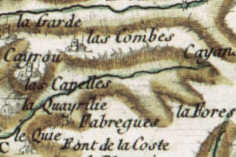 la Garde
las Combes
Cayrou
Cayan
las Capelles
la Quayrilie
Fabregues
la Fores
le Quie
Font de la Coste